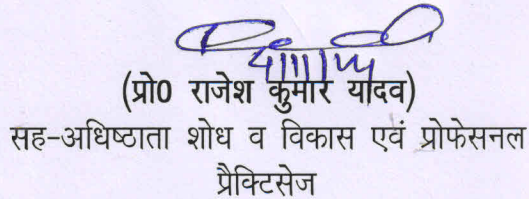 (प्रो0 राजेश कुमार यादव)
सह-अधिष्ठाता शोध व विकास एवं प्रोफेसनल
प्रैक्टिसेज